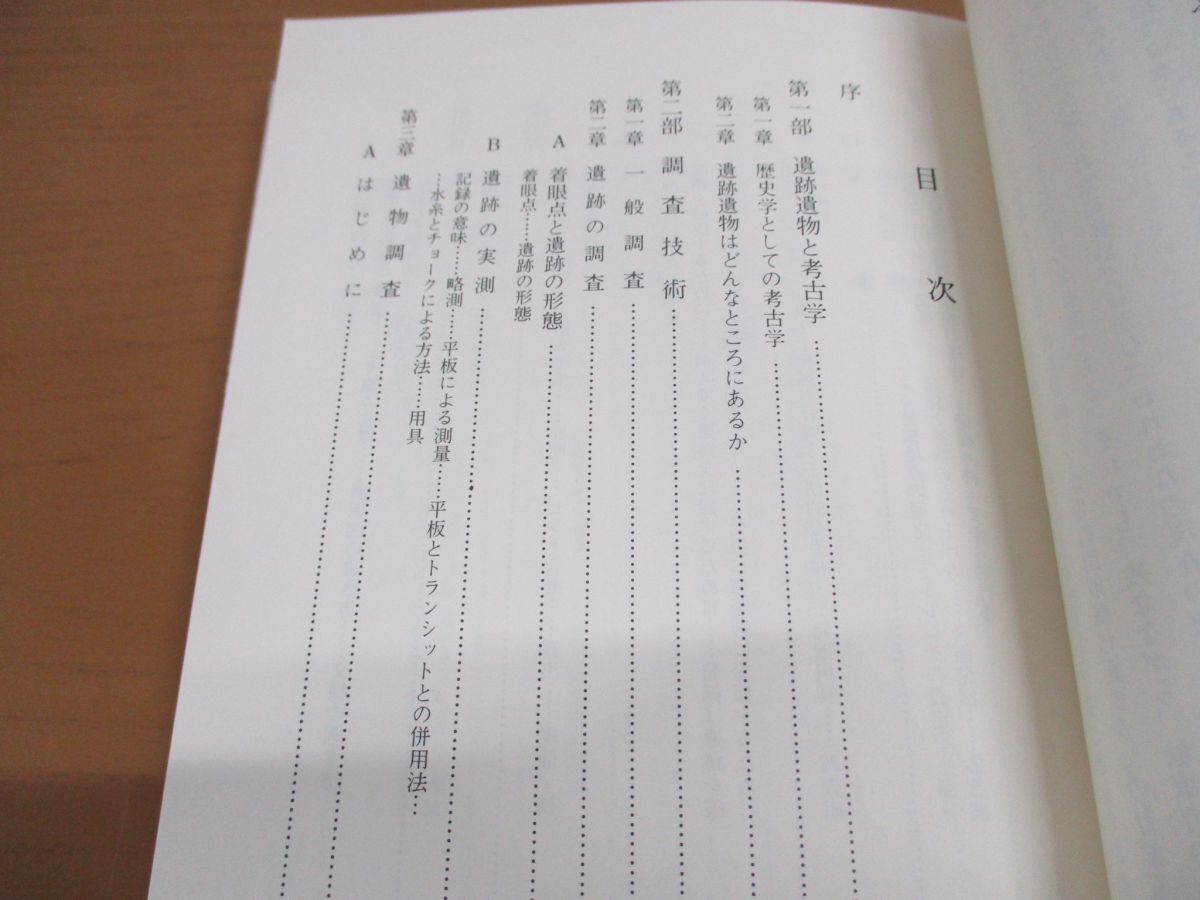 目次
序
第一部 遺跡遺物と考古学……
第一章 歴史学としての考古学……
第二章 遺跡遺物はどんなところにあるか……
第二部 調査技術……
第一章 一般調査……
第二章 遺跡の調査……
A 着眼点と遺跡の形態……
着眼点……遺跡の形態
B 遺跡の実測……
記録の意味……略測……平板による測量……平板とトランシットとの併用法…
…水糸とチョークによる方法……用具
第三章 遺物調査……
A はじめに……